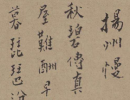 揚州慢
秋碧傳真
難酬
暮琵琶